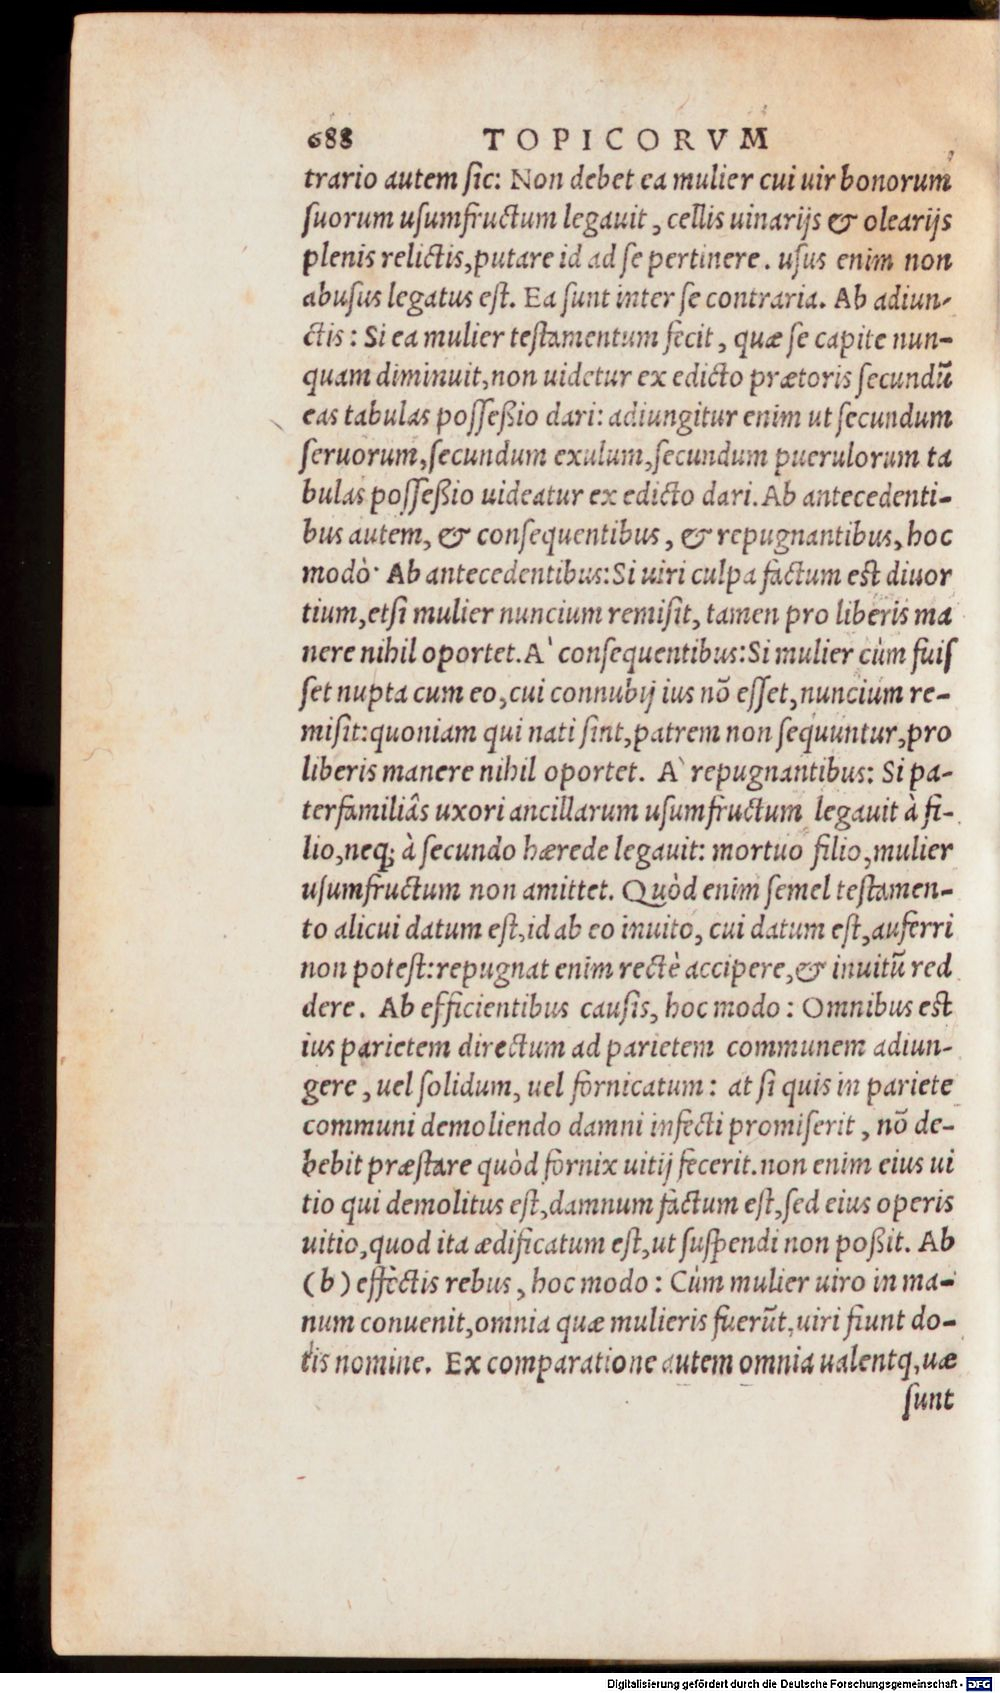 688 TOPICORVM
trario autem ſic: Non debet ea mulier cui uir bonorum
ſuorum uſumfructum legauit, cellis uinarijs & olearijs
plenis relictis, putare id ad ſe pertinere. uſus enim non
abuſus legatus eſt. Ea ſunt inter ſe contraria. Ab adiun-
ctis: Si ea mulier teſtamentum fecit, quæ ſe capite nun-
quam diminuit, non uidetur ex edicto prætoris ſecundũ
eas tabulas poſſeßio dari: adiungitur enim ut ſecundum
ſeruorum, ſecundum exulum, ſecundum puerulorum ta
bulas poſſeßio uideatur ex edicto dari. Ab antecedenti-
bus autem, & conſequentibus, & repugnantibus, hoc
modò· Ab antecedentibus: Si uiri culpa factum eſt diuor
tium, etſi mulier nuncium remiſit, tamen pro liberis ma
nere nihil oportet. A` conſequentibus: Si mulier cùm fuiſ
ſet nupta cum eo, cui connubij ius nõ eſſet, nuncium re-
miſit: quoniam qui nati ſint, patrem non ſequuntur, pro
liberis manere nihil oportet. A` repugnantibus: Si pa-
terfamiliâs uxori ancillarum uſumfructum legauit à fi-
lio, neq; à ſecundo hærede legauit: mortuo filio, mulier
uſumfructum non amittet. Quòd enim ſemel teſtamen-
to alicui datum eſt, id ab eo inuito, cui datum eſt, auferri
non poteſt: repugnat enim rectè accipere, & inuitũ red
dere. Ab efficientibus cauſis, hoc modo: Omnibus eſt
ius parietem directum ad parietem communem adiun-
gere, uel ſolidum, uel fornicatum: at ſi quis in pariete
communi demoliendo damni infecti promiſerit, nõ de-
bebit præſtare quòd fornix uitij fecerit. non enim eius ui
tio qui demolitus eſt, damnum factum eſt, ſed eius operis
uitio, quod ita ædificatum eſt, ut ſuſpendi non poßit. Ab
(b) effectis rebus, hoc modo: Cùm mulier uiro in ma-
num conuenit, omnia quæ mulieris fuerũt, uiri fiunt do-
tis nomine. Ex comparatione autem omnia ualentq, uæ
ſunt
Digitalisierung gefördert durch die Deutsche Forschungsgemeinschaft - DFG